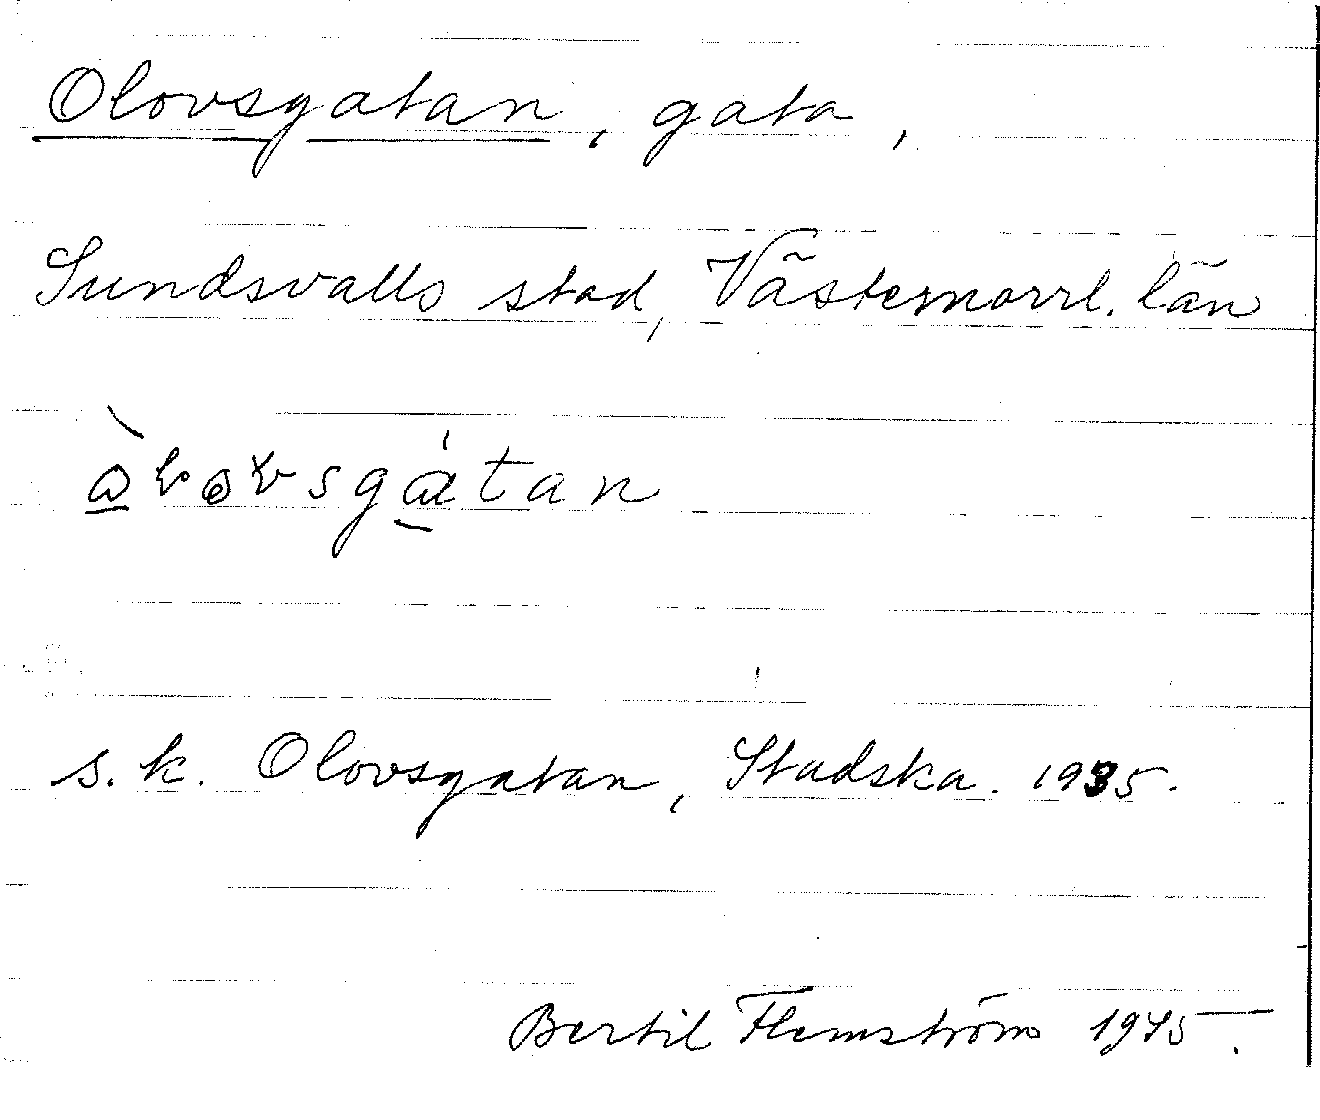 Olovsgatan, gata,
Sundsvalls stad, Västernorrl. län
s.k. Olovsgatan, Stadska. 1935.
Bertil Flemström 1975.